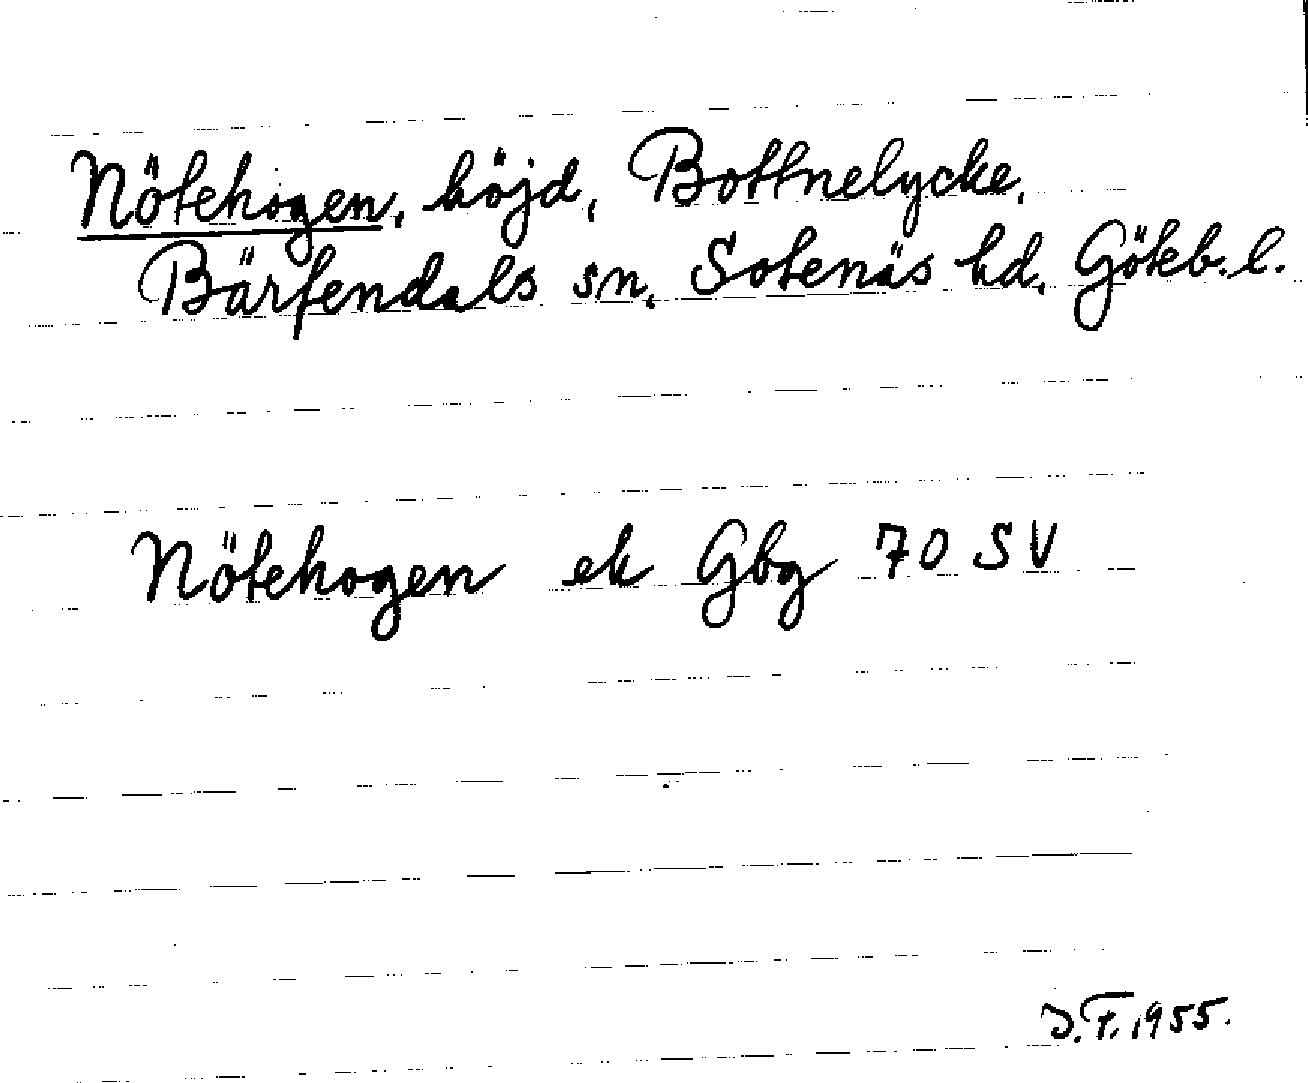 Nötehogen, höjd, Bottnelycke,
Bärfendals sn, Sotenäs hd, Göteb. l.
Nötehogen ek Gbg 70 SV
D.F. 1955.